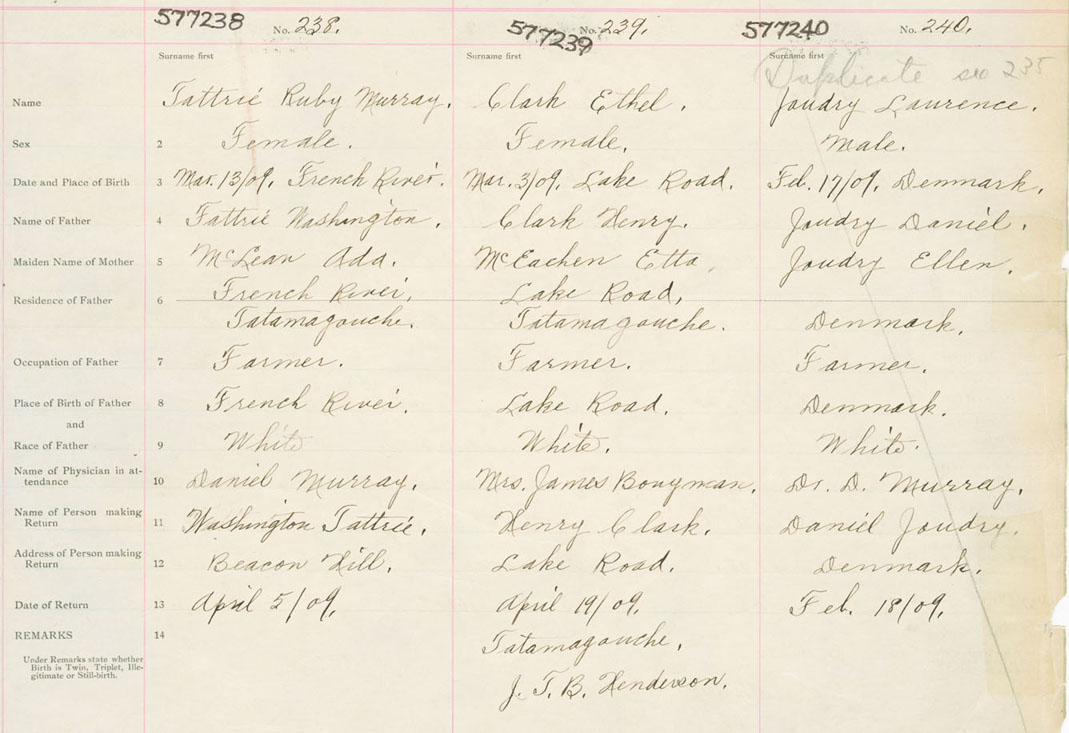 577238 No. 238. 577239 No. 239. 577240 No. 240.
Surname first Surname first Surname first
Duplicate see 235
Name Tattrie Ruby Murray. Clark Ethel. Joudry Laurence.
Sex 2 Female. Female. Male.
Date and Place of Birth 3 Mar. 13/09. French River. Mar. 3/09. Lake Road. Feb. 17/09. Denmark.
Name of Father 4 Tattrie Washington. Clark Henry. Joudry Daniel.
Maiden Name of Mother 5 McLean Ada. McEachen Etta. Joudry Ellen.
Residence of Father 6 French River, Lake Road,
Tatamagouche. Tatamagouche. Denmark.
Occupation of Father 7 Farmer. Farmer. Farmer.
Place of Birth of Father 8 French River. Lake Road. Denmark.
and
Race of Father 9 White White. White.
Name of Physician in at-
tendance 10 Daniel Murray. Mrs. James Bonyman. Dr. D. Murray.
Name of Person making
Return 11 Washington Tattrie. Henry Clark. Daniel Joudry.
Address of Person making
Return 12 Beacon Hill. Lake Road. Denmark.
Date of Return 13 April 5/09. April 19/09. Feb. 18/09.
REMARKS 14 Tatamagouche.
Under Remarks state whether
Birth is Twin, Triplet, Ille-
gitimate or Still-birth.
J. T. B. Henderson.